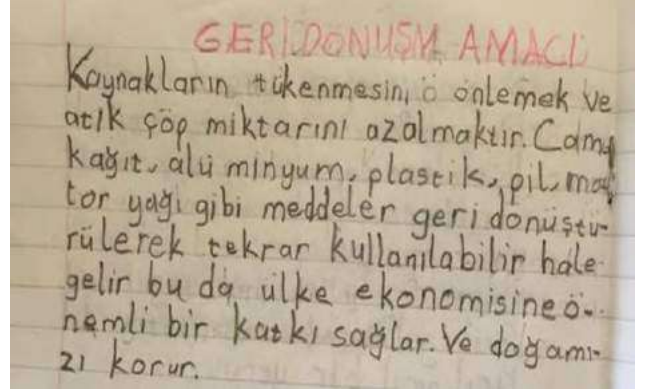 GERİ DÖNÜŞM AMACI
Kaynakların tükenmesini ö önlemek ve
atik çöp miktarını azalmaktır. Cam,
kağıt, alü minyum, plastik, pil, mo
tor yağı gibi meddeler geri dönüştü-
rülerek tekrar kullanılabilir hale
gelir bu da ülke ekonomisine ö-
nemli bir katkı sağlar. Ve doğamı-
zı korur.